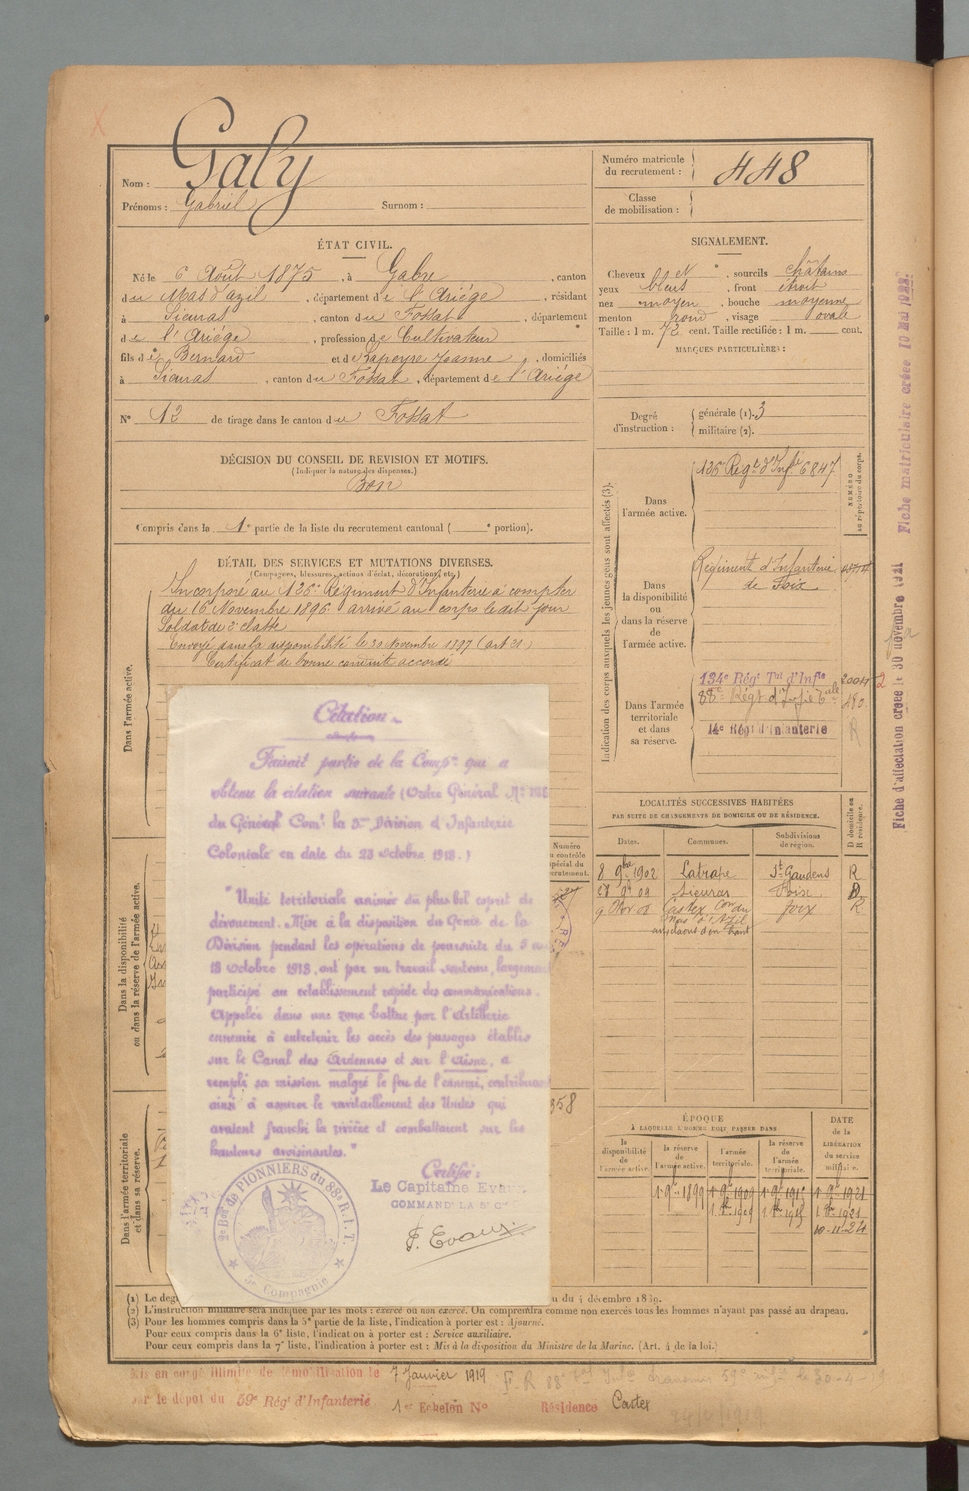 Nom : Galy
Prénoms : Gabriel Surnom :
Numéro matricule du recrutement : 448
Classe de mobilisation :
ÉTAT CIVIL.
Né le 6 Août 1875, à Gabre, canton
du Mas d'azil, département de l'Ariége, résidant
à Sieuras, canton du Fossat, département
de l'Ariége, profession de Cultivateur
fils de Bernard et de Lapeyre Jeanne, domiciliés
à Sieuras, canton du Fossat, département de l'Ariége
N° 12 de tirage dans le canton du Fossat
SIGNALEMENT.
Cheveux et sourcils châtains
yeux bleus, front étroit
nez moyen, bouche moyenne
menton rond, visage ovale
Taille : 1 m. 72 cent. Taille rectifiée : 1 m. cent.
MARQUES PARTICULIÈRES :
Degré d'instruction : générale (1). 3
militaire (2).
DÉCISION DU CONSEIL DE REVISION ET MOTIFS.
(Indiquer la nature des dispenses.)
Bon
Compris dans la 1e partie de la liste du recrutement cantonal ( e portion).
DÉTAIL DES SERVICES ET MUTATIONS DIVERSES.
(Campagnes, blessures, actions d'éclat, décorations, etc.)
Dans l'armée active.
Incorporé au 126e Régiment d'Infanterie à compter
du 16 Novembre 1896 arrivé au corps le dit jour
Soldat de 2e classe
Envoyé dans la disponibilité le 20 Novembre 1897 (art 21)
Certificat de bonne conduite accordé
Dans la disponibilité ou dans la réserve de l'armée active.
Dans l'armée territoriale et dans sa réserve.
Citation
Faisait partie de la Compie qui a
obtenu la citation suivante (Ordre Général N°
du Général Comt la 5me Division d'Infanterie
Coloniale en date du 23 octobre 1918.)
"Unité territoriale animée du plus bel esprit de
dévouement. Mise à la disposition du Génie de la
Division pendant les opérations de poursuite du 5 au
18 octobre 1918, ont par un travail soutenu, largement
participé au rétablissement rapide des communications.
Appelée dans une zone battue par l'Artillerie
ennemie à entretenir les accès des passages établis
sur le Canal des Ardennes et sur l'Aisne, a
rempli sa mission malgré le feu de l'ennemi, contribuant
ainsi à assurer le ravitaillement des Unités qui
avaient franchi la rivière et combattaient sur les
hauteurs avoisinantes."
Certifié :
Le Capitaine Evaux
COMMANDt LA 5e Cie
F. Evaux
2e Bon de PIONNIERS du 88e R.I.T.
5e Compagnie
Indication des corps auxquels les jeunes gens sont affectés (3).
NUMÉRO au répertoire du corps.
Dans l'armée active.
126e Régt d'Infie 6847
Dans la disponibilité ou dans la réserve de l'armée active.
Régiment d'Infanterie
de Foix
Dans l'armée territoriale et dans sa réserve.
134e Régt Tal d'Infie
88e Régt d'Infie Tale
14e Régt d'Infanterie
R
LOCALITÉS SUCCESSIVES HABITÉES
PAR SUITE DE CHANGEMENTS DE DOMICILE OU DE RÉSIDENCE.
Dates. Communes. Subdivisions de région. D domicile ou R résidence.
8 9bre 1902 Latrape St Gaudens R
Sieuras Foix
Castex Con du Foix R
Mas d'Azil
ÉPOQUE
À LAQUELLE L'HOMME DOIT PASSER DANS
la disponibilité de l'armée active.
la réserve de l'armée active.
l'armée territoriale.
la réserve de l'armée territoriale.
DATE de la LIBÉRATION du service militaire.
10-11-24
Fiche matriculaire créée 10 Mai 1922.
Fiche d'affectation créée le 30 novembre 1921
(1) Le degr
(2) L'instruction militaire sera indiquée par les mots : exercé ou non exercé. On comprendra comme non exercés tous les hommes n'ayant pas passé au drapeau.
(3) Pour les hommes compris dans la 5e partie de la liste, l'indication à porter est : Ajourné.
Pour ceux compris dans la 6e liste, l'indication à porter est : Service auxiliaire.
Pour ceux compris dans la 7e liste, l'indication à porter est : Mis à la disposition du Ministre de la Marine. (Art. 4 de la loi.)
Mis en congé illimité de démobilisation le 7 Janvier 1919
par le dépôt du 59e Régt d'Infanterie 1er Echelon N° Résidence Castex